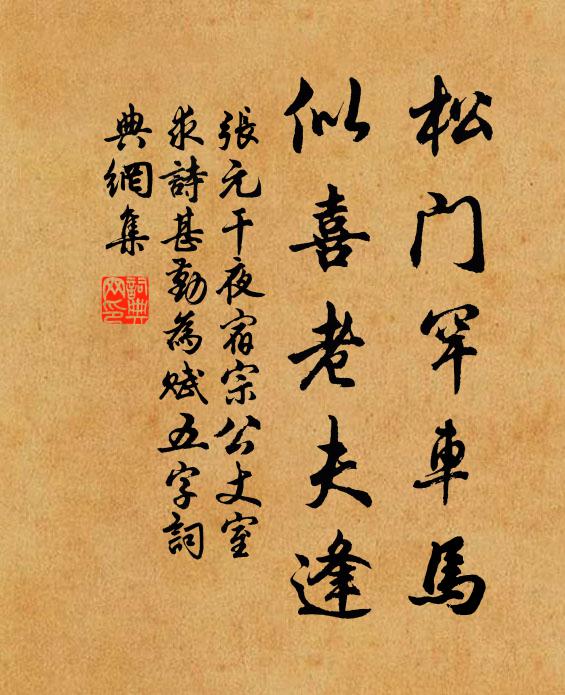 松門罕車馬
似喜老夫逢
張元干夜宿宗公丈室
求詩甚勤為賦五字詞
典網集
詞典网印